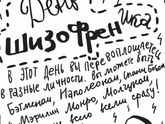 День
Шизофрен
ика
в этот день вы перевоплощаетесь
в разные личности. Вы можете быть
Бэтменом, Наполеоном,
Мэрилин Монро,
всего всеми сразу!